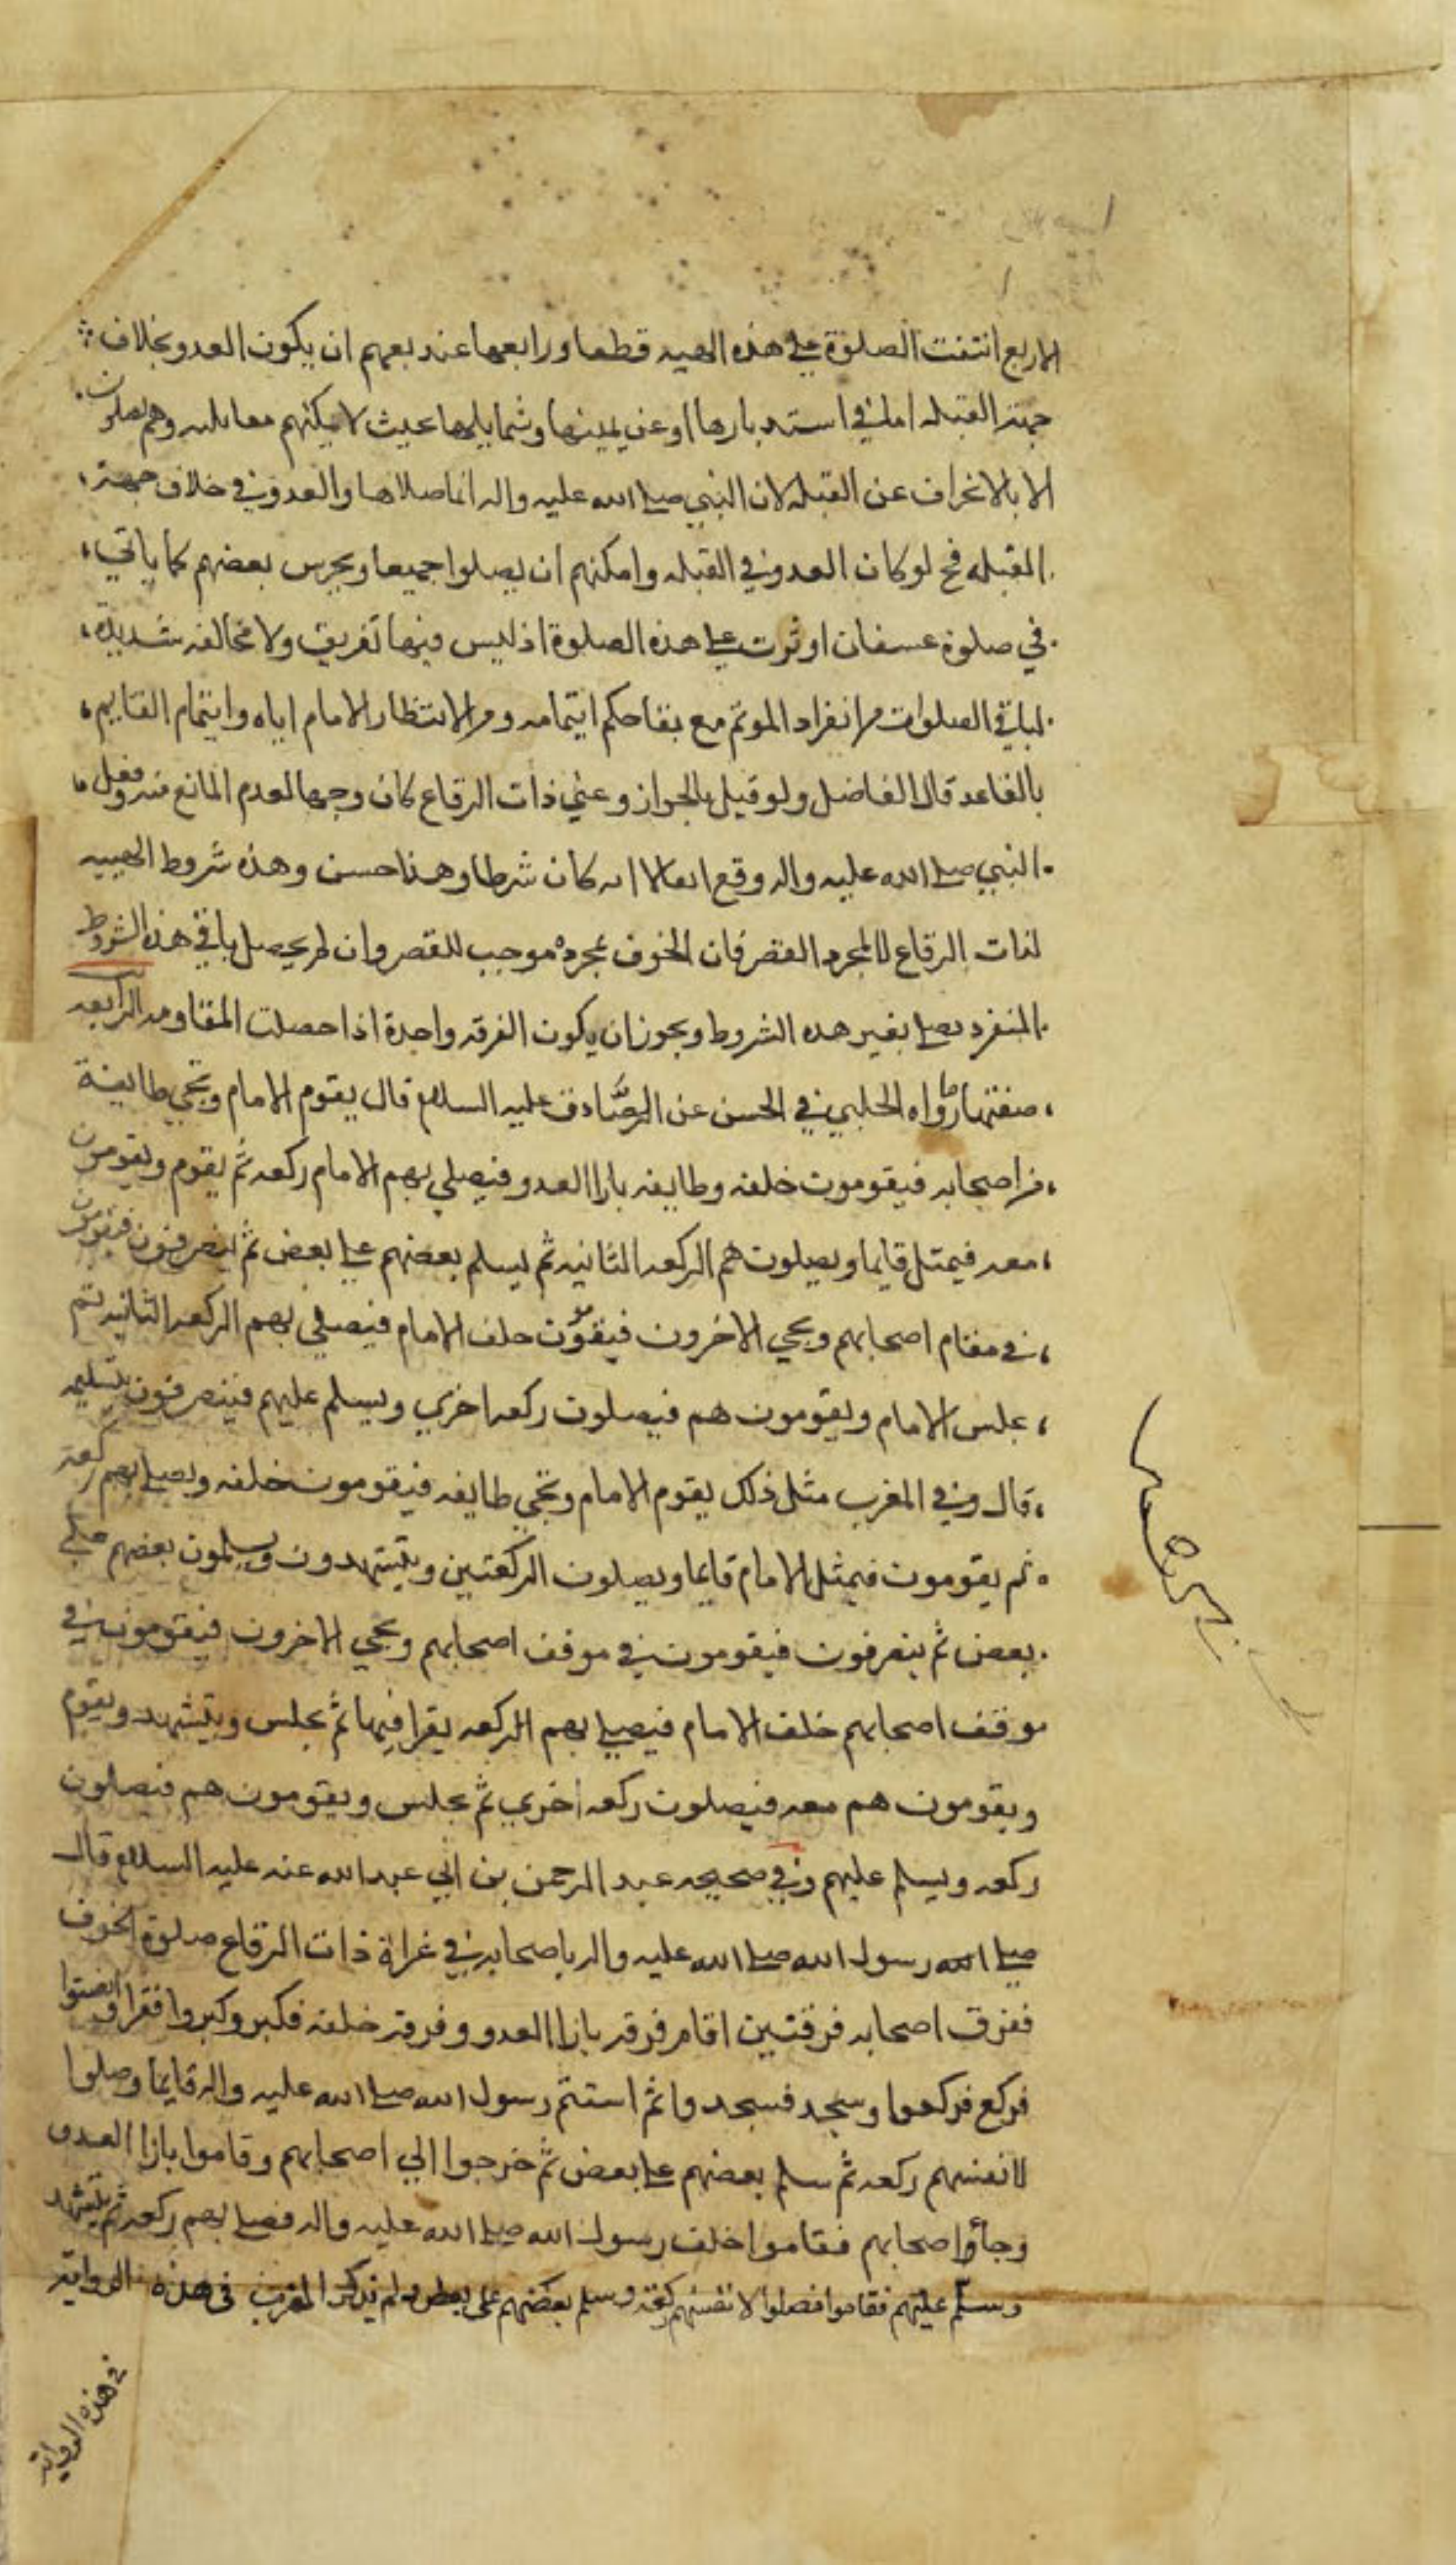 الاربع انتفت الصلوة علي هذه الهيه قطعا ورابعها عند بعهم ان يكون العدو بخلاف
جهة القبله اما في استدبارها او عن يمينها وشمايلها بحيث لا يمكنهم مقابلته وهم يصلون
الا بالانحراف عن القبله لان النبي صلى الله عليه واله انما صلاها والعدو في خلاف جهة
القبله فح لو كان العدو في القبله وامكنهم ان يصلوا جميعا ويحرس بعضهم كما ياتي
في صلوة عسفان اوثرت علي هذه الصلوة اذ ليس فيها تفريق ولا مخالفه شديدة
لباقي الصلوات من انفراد الموتم مع بقا حكم ايتمامه ومن الانتظار الامام اياه وايتمام القايم
بالقاعد قال الفاضل ولو قيل بالجواز وعني ذات الرقاع كان وجها لعدم المانع منه وفعل
النبي صلى الله عليه واله وقع اتفاقا لا انه كان شرطا وهذا حسن وهذه شروط الهييه
لذات الرقاع لا لمجرد القصر فان الخوف بمجرده موجب للقصر وان لم يحصل باقي هذه الشروط
المنفرد يصلي بغير هذه الشروط ويجوز ان يكون الفرقه واحدة اذا حصلت المقاومه الرابعه
صفتها ما رواه الحلبي في الحسن عن الصادق عليه السلام قال يقوم الامام وتجي طايفة
من اصحابه فيقومون خلفه وطايفه بازا العدو فيصلي بهم الامام ركعه ثم يقوم ويقومون
معه فيمثل قايما ويصلون هم الركعه الثانيه ثم يسلم بعضهم علي بعض ثم ينصرفون فيقومون
في مقام اصحابهم ويجي الاخرون فيقومون خلف الامام فيصلي بهم الركعه الثانيه ثم
يجلس الامام ويقومون هم فيصلون ركعه اخري ويسلم عليهم فينصرفون بتسليمه
قال وفي المغرب مثل ذلك يقوم الامام وتجي طايفه فيقومون خلفه ويصلي بهم ركعة
ثم يقومون فيمثل الامام قايما ويصلون الركعتين ويتشهدون ويسلمون بعضهم علي
بعض ثم ينصرفون فيقومون في موقف اصحابهم ويجي الاخرون فيقومون في
موقف اصحابهم خلف الامام فيصلي بهم الركعه يقرا فيها ثم يجلس ويتشهد ويقوم
ويقومون هم معه فيصلون ركعه اخري ثم يجلس ويقومون هم فيصلون
ركعه ويسلم عليهم وفي صحيحه عبد الرحمن بن ابي عبد الله عنه عليه السلام قال
صلى الله رسول الله صلى الله عليه واله باصحابه في غزاة ذات الرقاع صلوة الخوف
ففرق اصحابه فرقتين اقام فرقه بازا العدو وفرقه خلفه فكبر وكبروا فقرا وانصتوا
فركع فركعوا وسجد فسجدوا ثم استتم رسول الله صلى الله عليه واله قايما وصلوا
لانفسهم ركعه ثم سلم بعضهم علي بعض ثم خرجوا الي اصحابهم وقاموا بازا العدو
وجاؤا اصحابهم فقاموا خلف رسول الله صلى الله عليه واله فصلي بهم ركعه ثم يتشهد
وسلم عليهم فقاموا فصلوا لانفسهم ركعة وسلم بعضهم على بعض ولم يذكر المغرب في هذه الرواية
في هذه الرواية